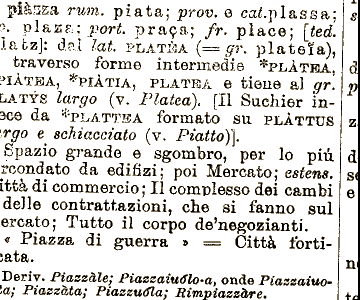 piàzza rum. piata; prov. e cat. plassa;
plaza; port. praça; fr. place; [ted.
latz]: dal lat. PLATÈA (= gr. plateîa),
traverso forme intermedie *PLÀTEA,
PIÀTEA, *PIÀTIA, PLATEA e tiene al gr.
LATÝS largo (v. Platea). [Il Suchier in-
ece da *PLATTEA formato su PLÀTTUS
rgo e schiacciato (v. Piatto)].
Spazio grande e sgombro, per lo più
rcondato da edifizi; poi Mercato; estens.
ittà di commercio; Il complesso dei cambi
delle contrattazioni, che si fanno sul
ercato; Tutto il corpo de'negozianti.
« Piazza di guerra » = Città forti-
cata.
Deriv. Piazzàle; Piazzaiuólo-a, onde Piazzaiuo-
ta; Piazzàta; Piazzuóla; Rimpiazzàre.